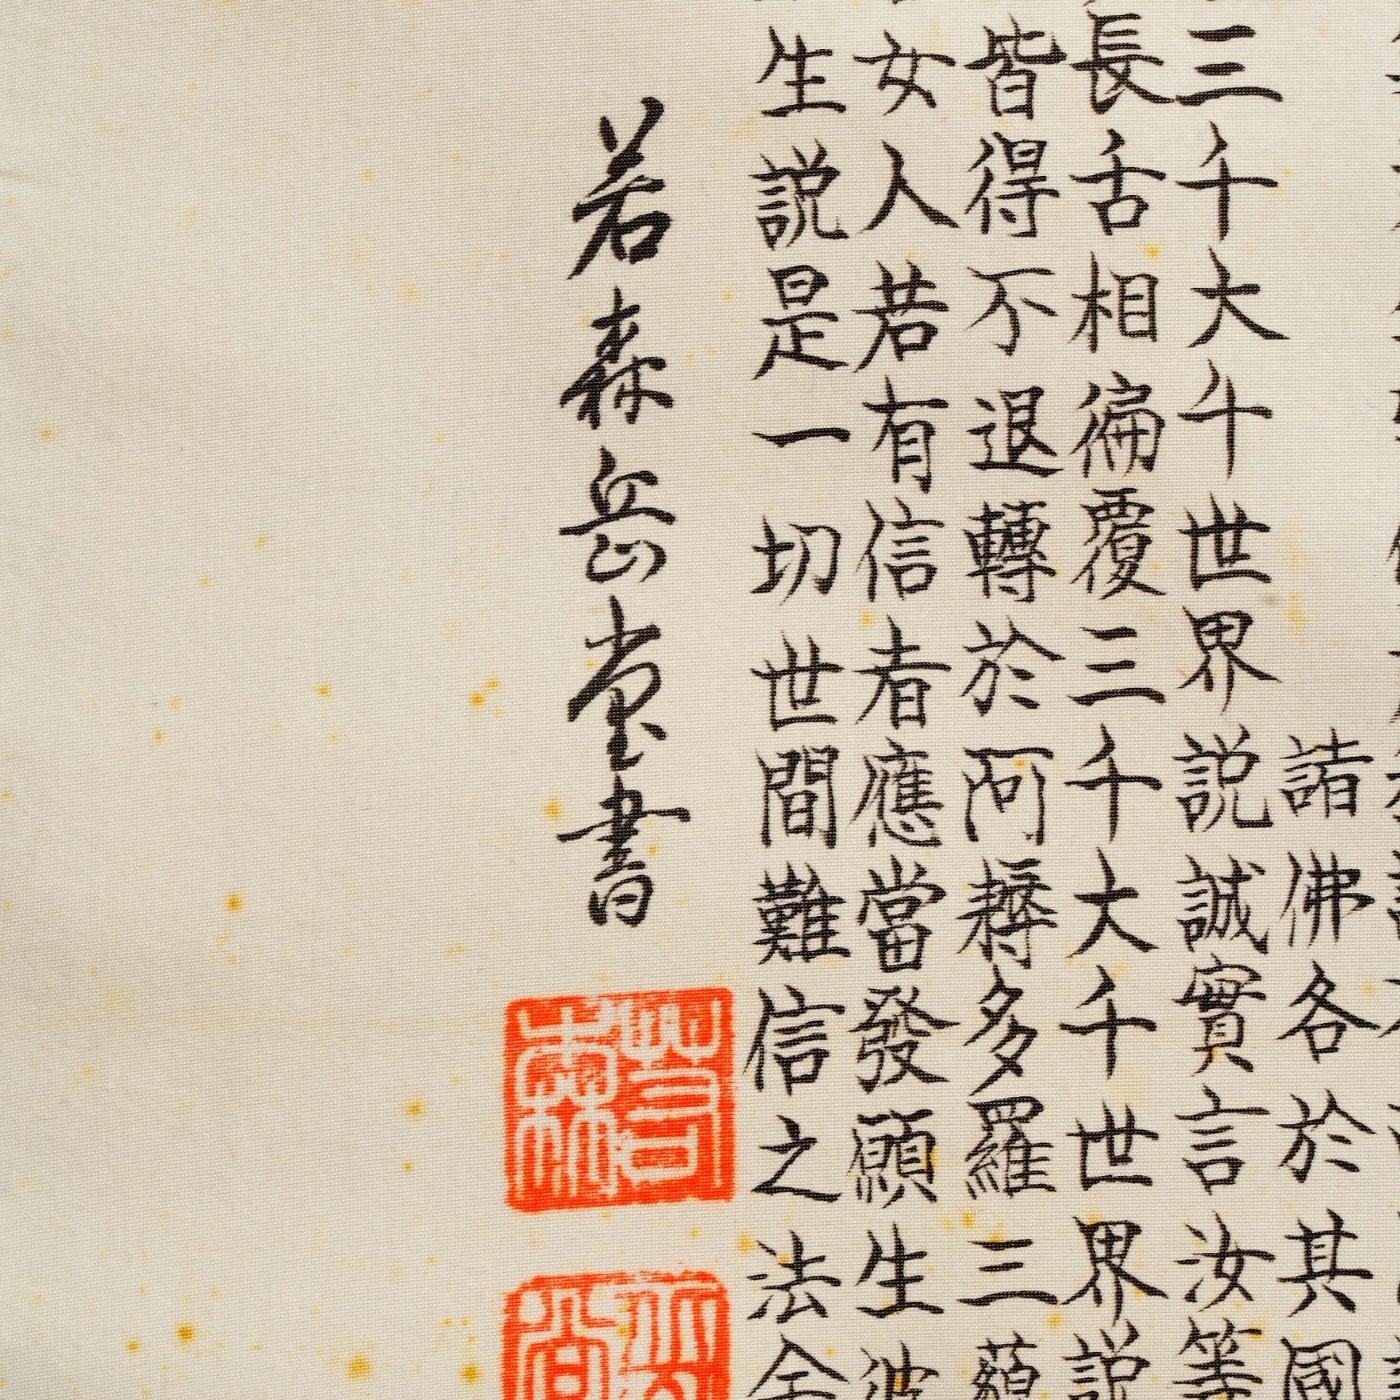 諸佛各於其國
三千大千世界說誠實言汝等
長舌相徧覆三千大千世界說
皆得不退轉於阿耨多羅三藐
女人若有信者應當發願生彼
生說是一切世間難信之法舍
若森岳堂書
若森